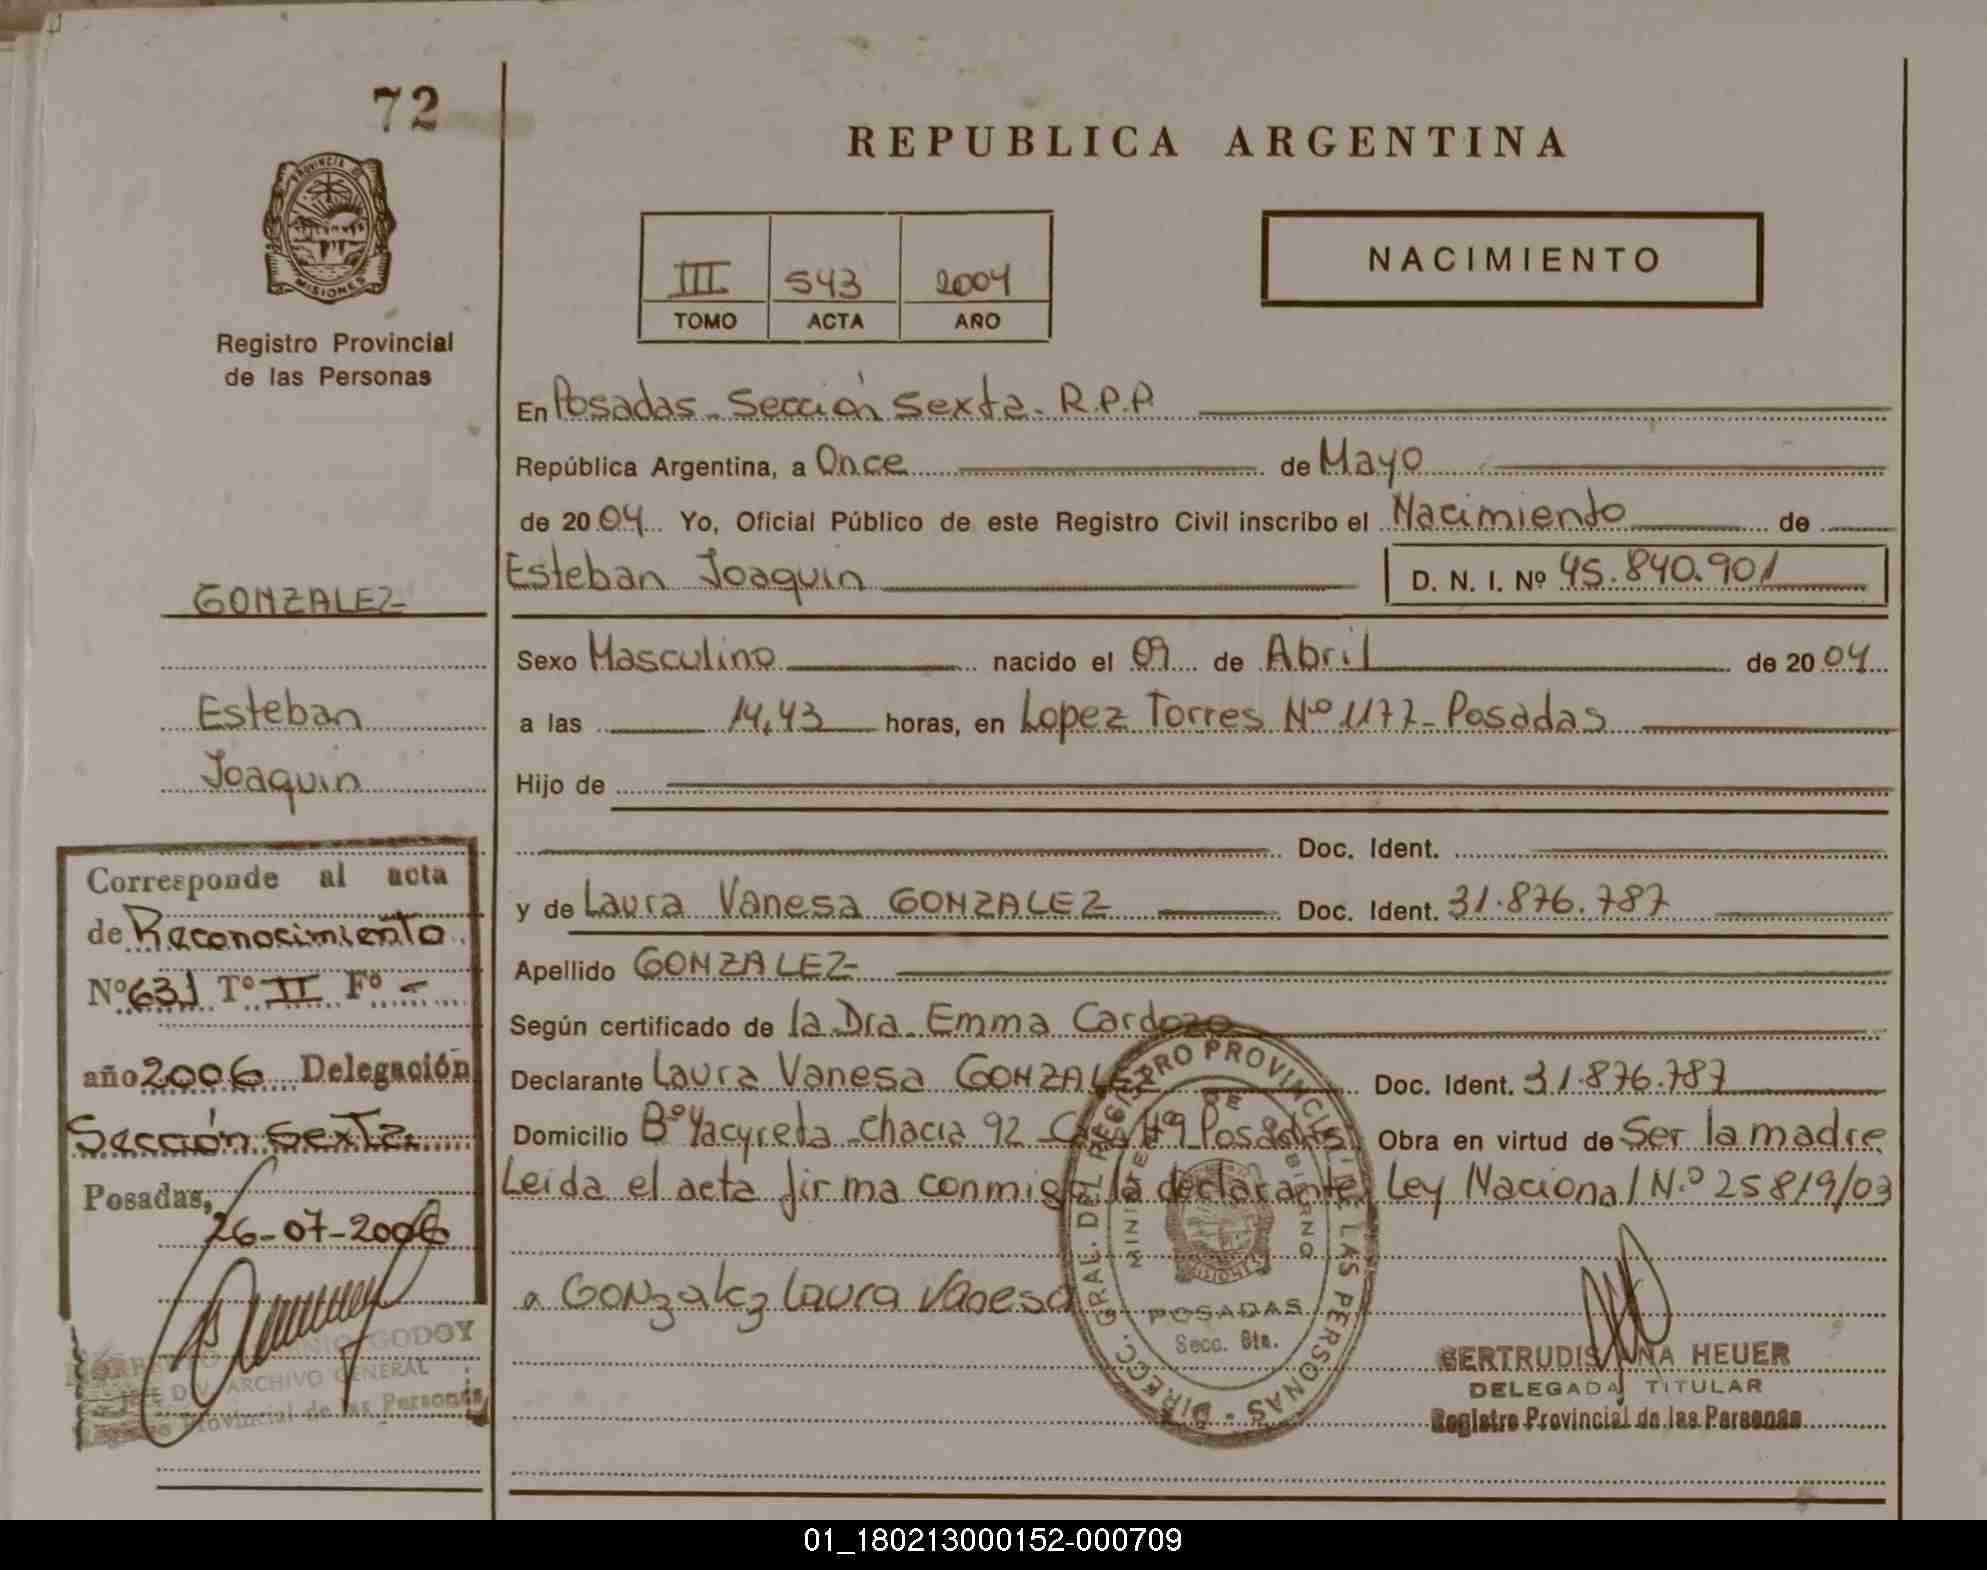 72
PROVINCIA DE
MISIONES
Registro Provincial
de las Personas
REPUBLICA ARGENTINA
III 543 2004
TOMO ACTA AÑO
NACIMIENTO
En Posadas - Sección Sexta - R.P.P.
República Argentina, a Once de Mayo
de 2004 Yo, Oficial Público de este Registro Civil inscribo el Nacimiento de
Esteban Joaquin
D. N. I. Nº 45.840.901
Sexo Masculino nacido el 09 de Abril de 2004
a las 14,43 horas, en Lopez Torres Nº 1177 - Posadas
Hijo de
Doc. Ident.
y de Laura Vanesa GONZALEZ Doc. Ident. 31.876.787
Apellido GONZALEZ
Según certificado de la Dra. Emma Cardozo
Declarante Laura Vanesa GONZALEZ Doc. Ident. 31.876.787
Domicilio Bº Yacyreta - chacra 92 - Posadas Obra en virtud de Ser la madre
Leida el acta firma conmigo la declarante Ley Nacional N.º 25819/03
Gonzalez Laura Vanesa
DIRECC. GRAL. DEL REGISTRO PROVINCIAL DE LAS PERSONAS
MINISTERIO DE GOBIERNO
MISIONES
POSADAS
Secc. 6ta.
GERTRUDIS ANA HEUER
DELEGADA TITULAR
Registro Provincial de las Personas
GONZALEZ
Esteban
Joaquin
Corresponde al acta
de Reconocimiento
Nº 631 Tº II Fº -
año 2006 Delegación
Sección Sexta
Posadas,
26-07-2006
GODOY
DIV. ARCHIVO GENERAL
Registro Provincial de las Personas
01_180213000152-000709